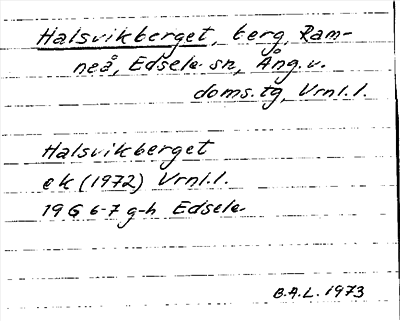 Halsvikberget, berg, Ram-
neå, Edsele sn, Ång.v.
doms.tg, Vrnl.l.
Halsvikberget
ek (1972) Vrnl.l.
19 G 6-7 g-h Edsele
B.A.L. 1973